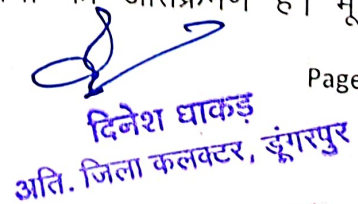 अतिक्रमण है। मू
Page
दिनेश धाकड़
अति. जिला कलक्टर, डूंगरपुर